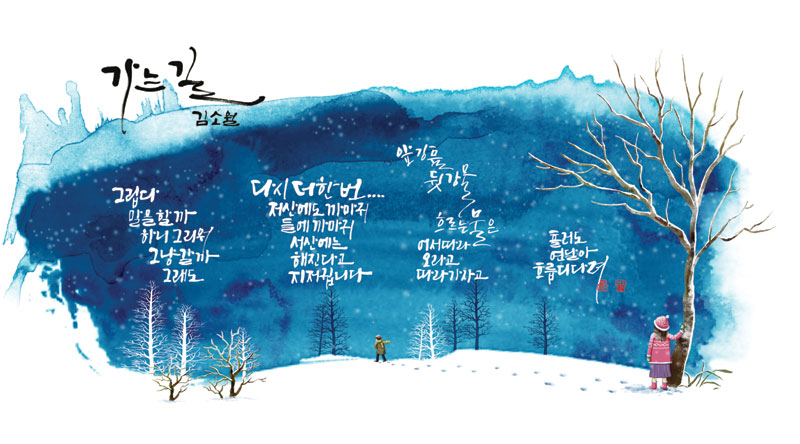 가는 길
김소월
그립다
말을 할까
하니 그리워
그냥 갈까
그래도
다시 더 한 번....
저 산에도 까마귀
들에 까마귀
서산에는
해진다고
지저귑니다
앞 강물
뒷 강물
흐르는 물은
어서 따라
오라고
따라가자고
흘러도
연달아
흐릅디다려